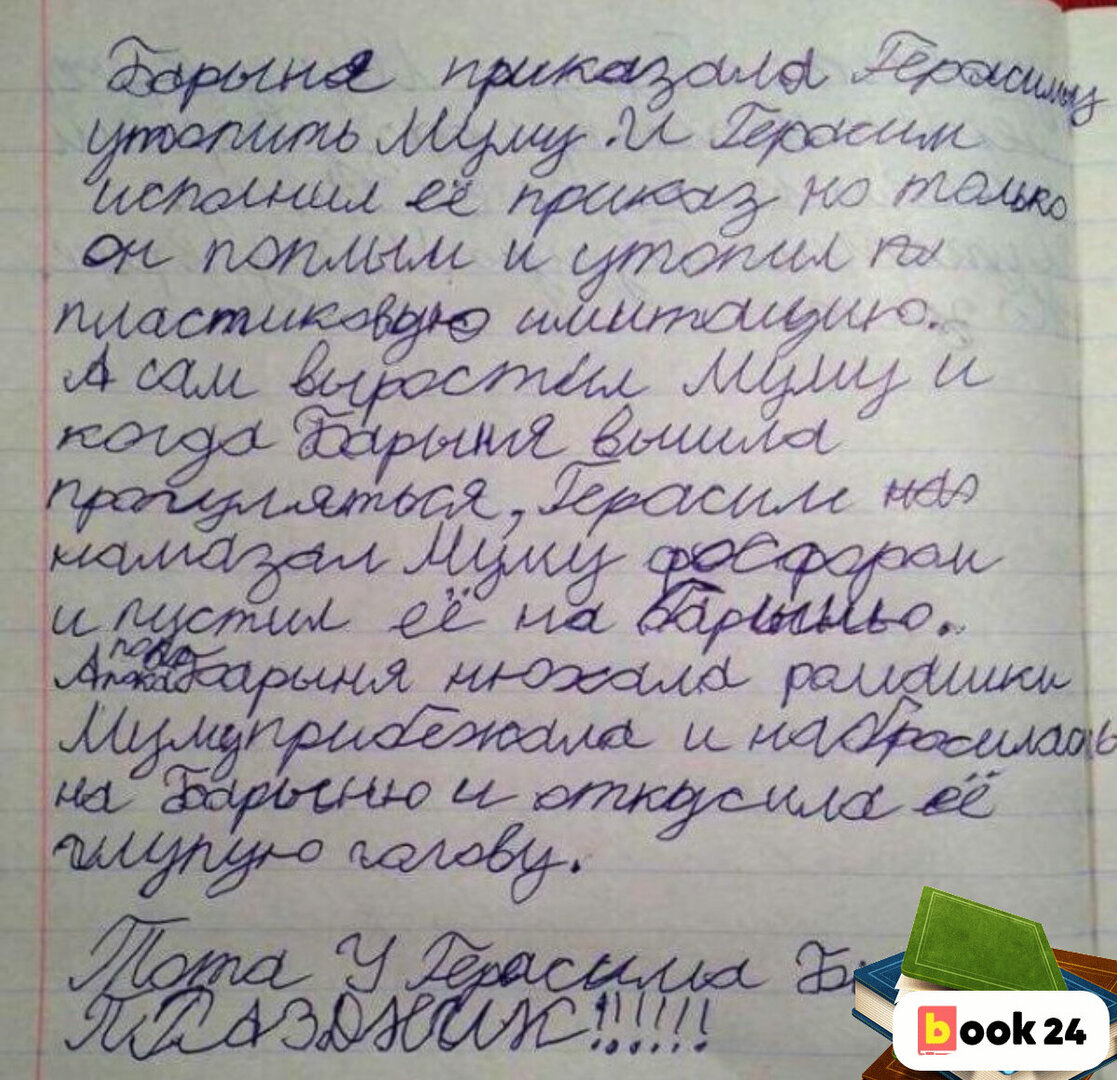 Барыня приказала Герасиму
утопить Муму. И Герасим
исполнил её приказ но только
он поплыл и утопил
пластиковую имитацию.
А сам выростил Муму и
когда Барыня вышла
прогуляться, Герасим
намазал Муму фосфором
и пустил её на Барыню.
А пока Барыня нюхала ромашки
Муму прибежала и набросилась
на Барыню и откусила её
глупую голову.
Тота У Герасима
ПРАЗДНИК!!!!!!
book 24